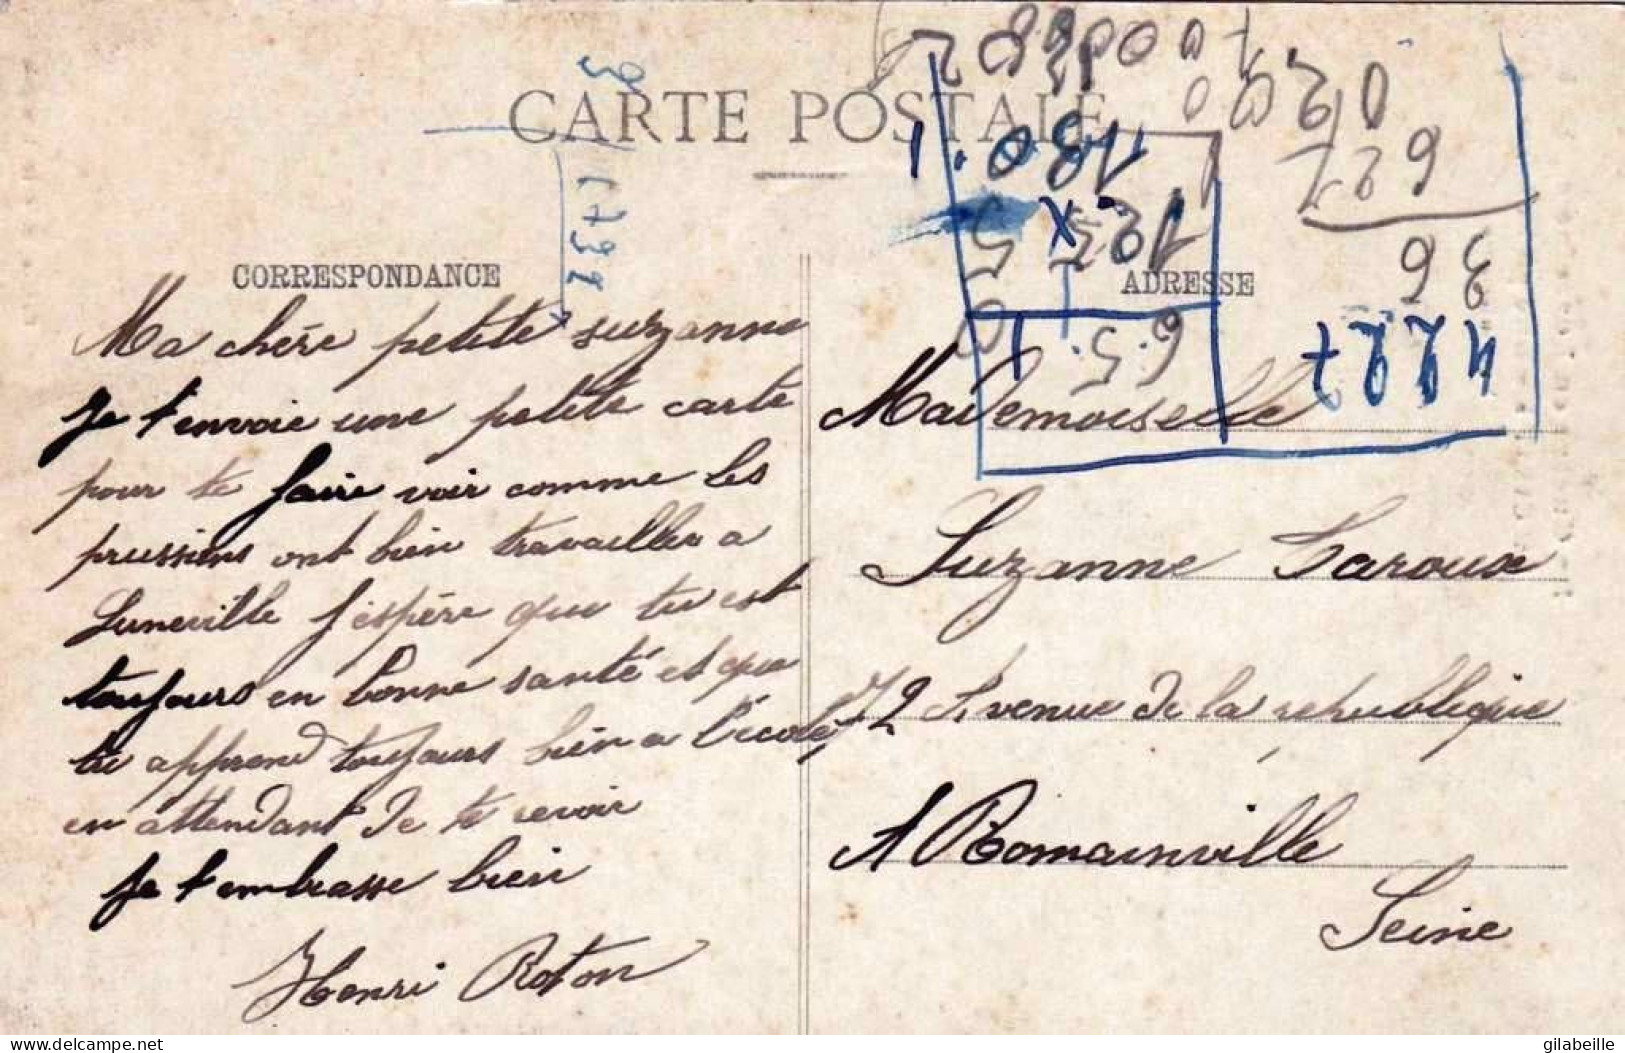 CARTE POSTALE
CORRESPONDANCE
Ma chère petite suzanne
Je t'envoie une petite carte
pour te faire voir comme les
prussiens ont bien travailler a
Luneville J'espère que tu est
toujours en bonne santé et que
tu apprend toujours bien a l'école
en attendant de te revoir
Je t'embrasse bien
Henri Roton
ADRESSE
Mademoiselle
Suzanne Laroux
72 Avenue de la republique
A Romainville
Seine
4227
delcampe.net
gilabeille